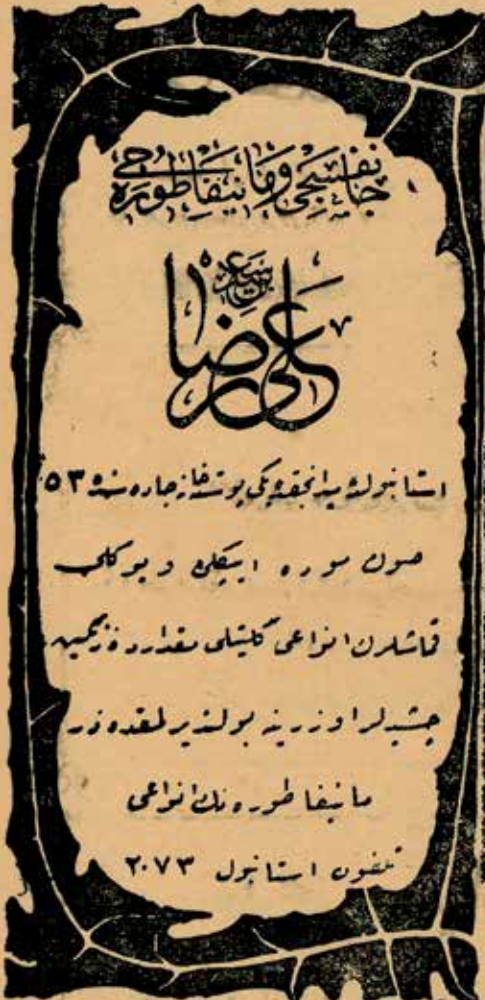 جانفسجی ومانیفاطوره جی
علی رضا
استانبولده میدانجقده یکی پوسته خانه جاده سنده ٥٣
صوك موده ایپکلی و یوکلی
قماشلرك انواعی کلیتلی مقدارده زنکین
چشیدلر اوزرینه بولندیرلمقده در
مانیفاطوره نك انواعی
تلفون استانبول ٢٠٧٣